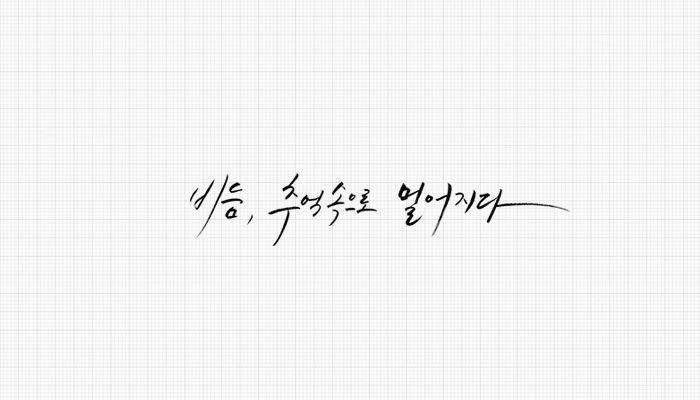 비듬, 추억속으로 멀어지다